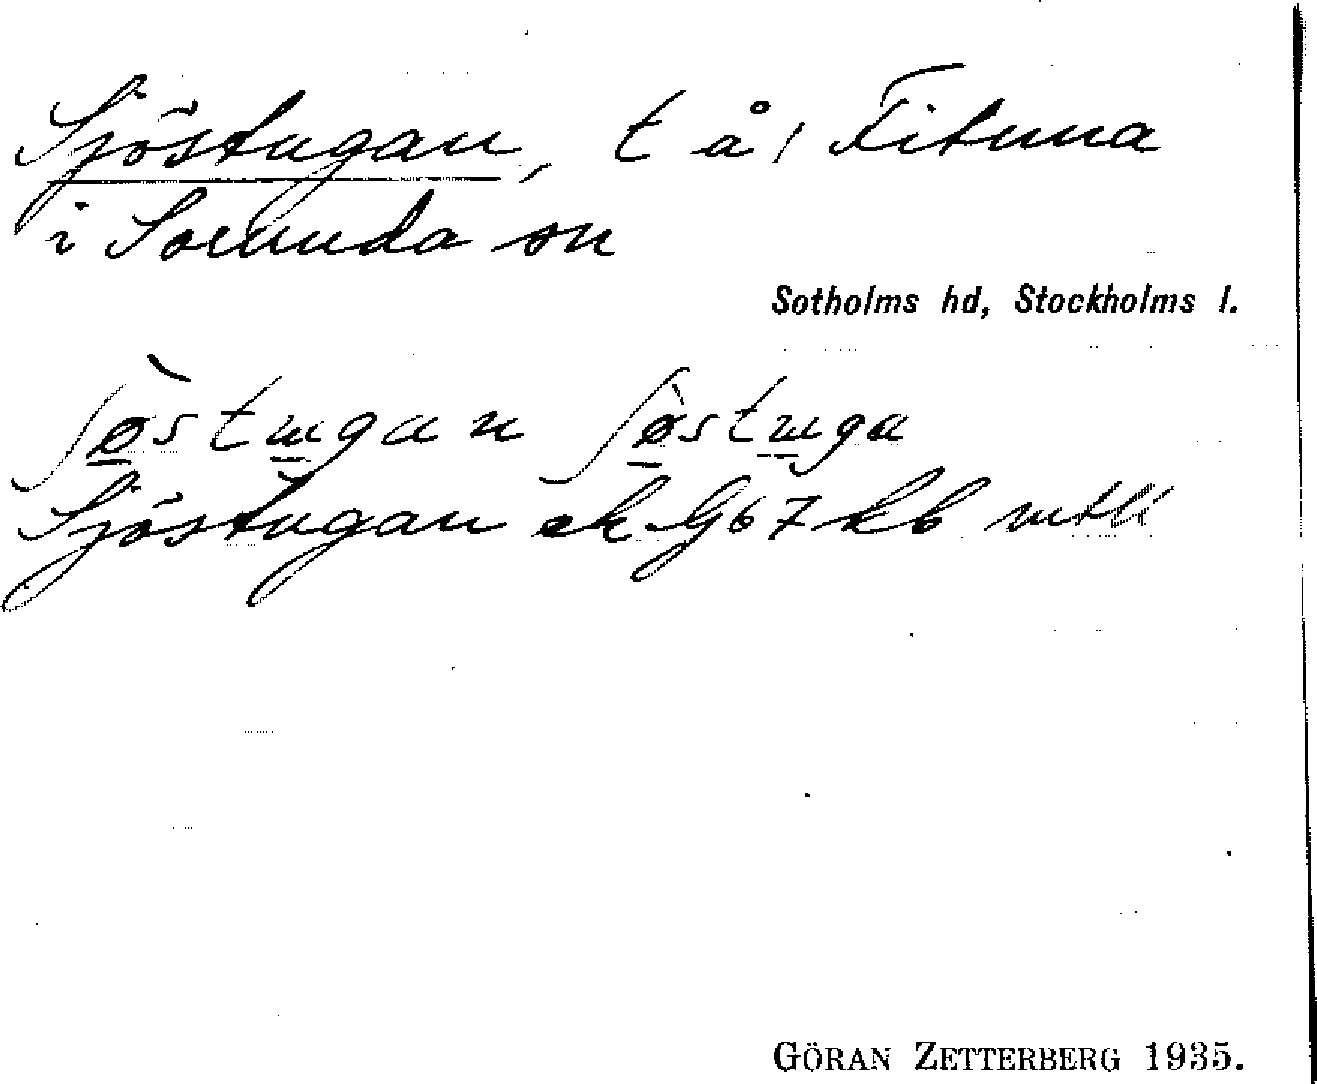 Sjöstugan, t å / Fituna
i Sorunda sn
Sotholms hd, Stockholms l.
ʃø̀stugan ʃø̀stuga
Sjöstugan ek G67 kb mtll
GÖRAN ZETTERBERG 1935.